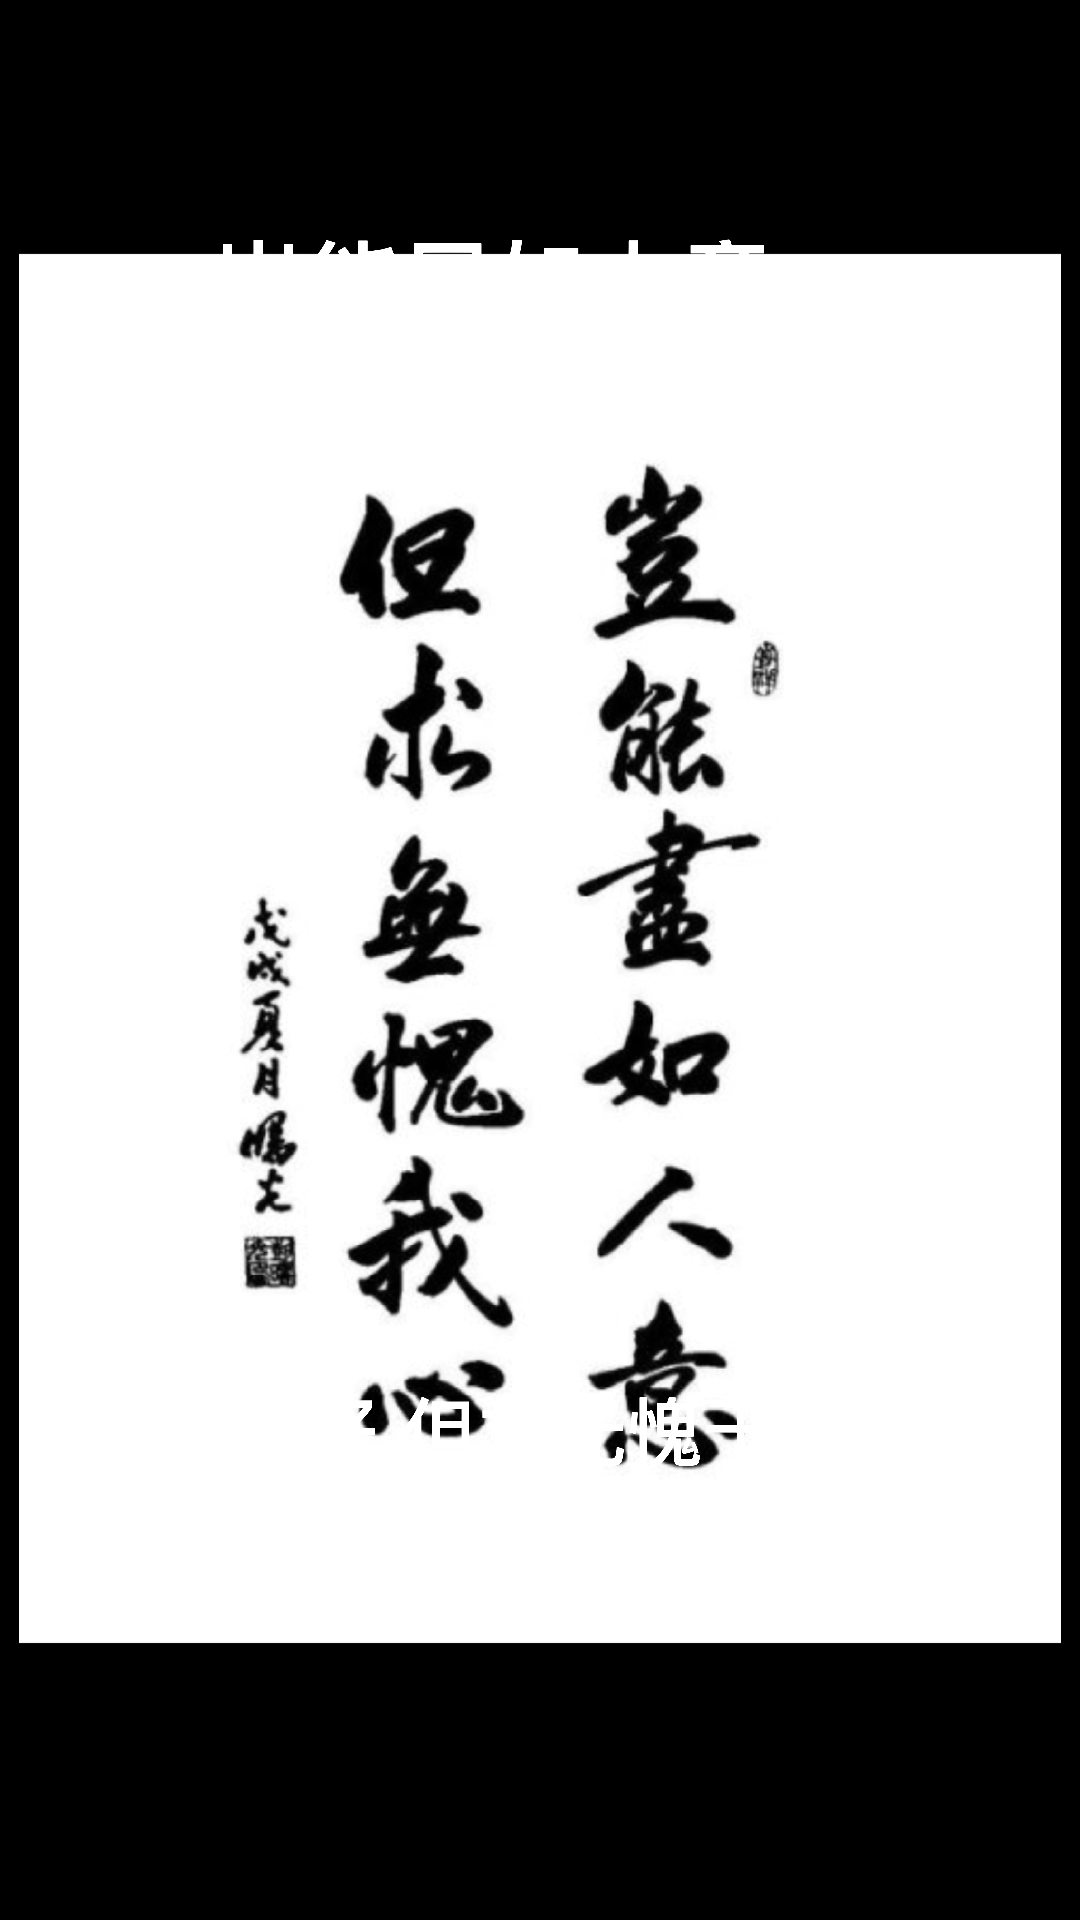 豈能盡如人意
但求無愧我心
戊戌夏月曙光